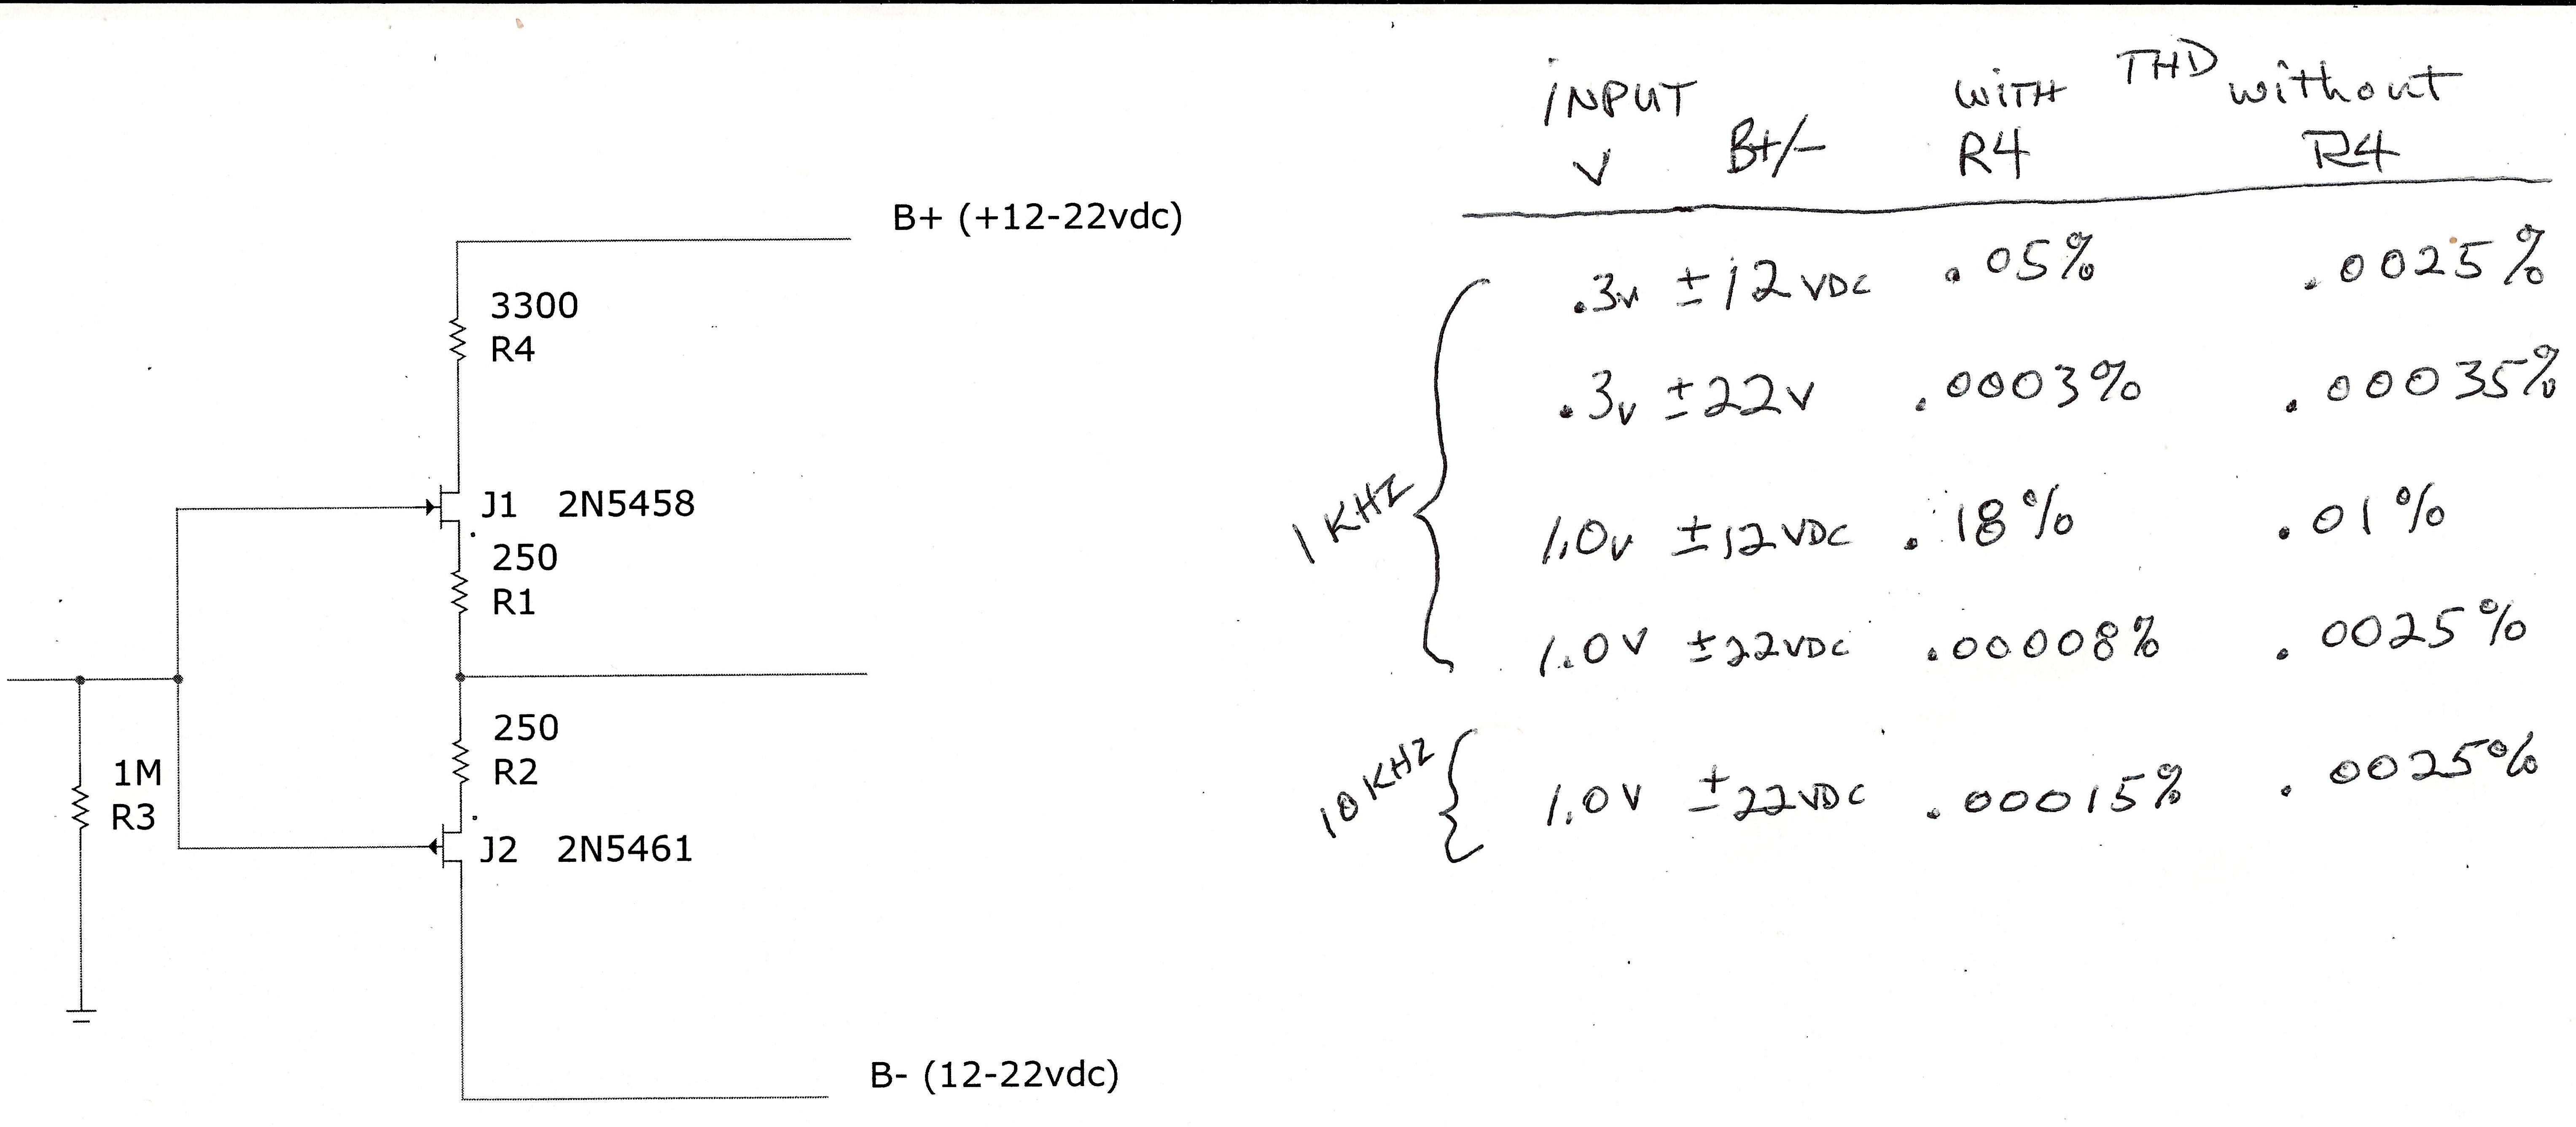 B+ (+12-22vdc)
3300
R4
J1 2N5458
250
R1
250
R2
1M
R3
J2 2N5461
B- (12-22vdc)
THD
INPUT WITH without
V B+/- R4 R4
1 KHZ
.3v ±12 VDC .05% .0025%
.3v ±22V .0003% .00035%
1.0v ±12 VDC .18% .01%
1.0V ±22VDC .00008% .0025%
10 KHZ
1.0V ±22VDC .00015% .0025%